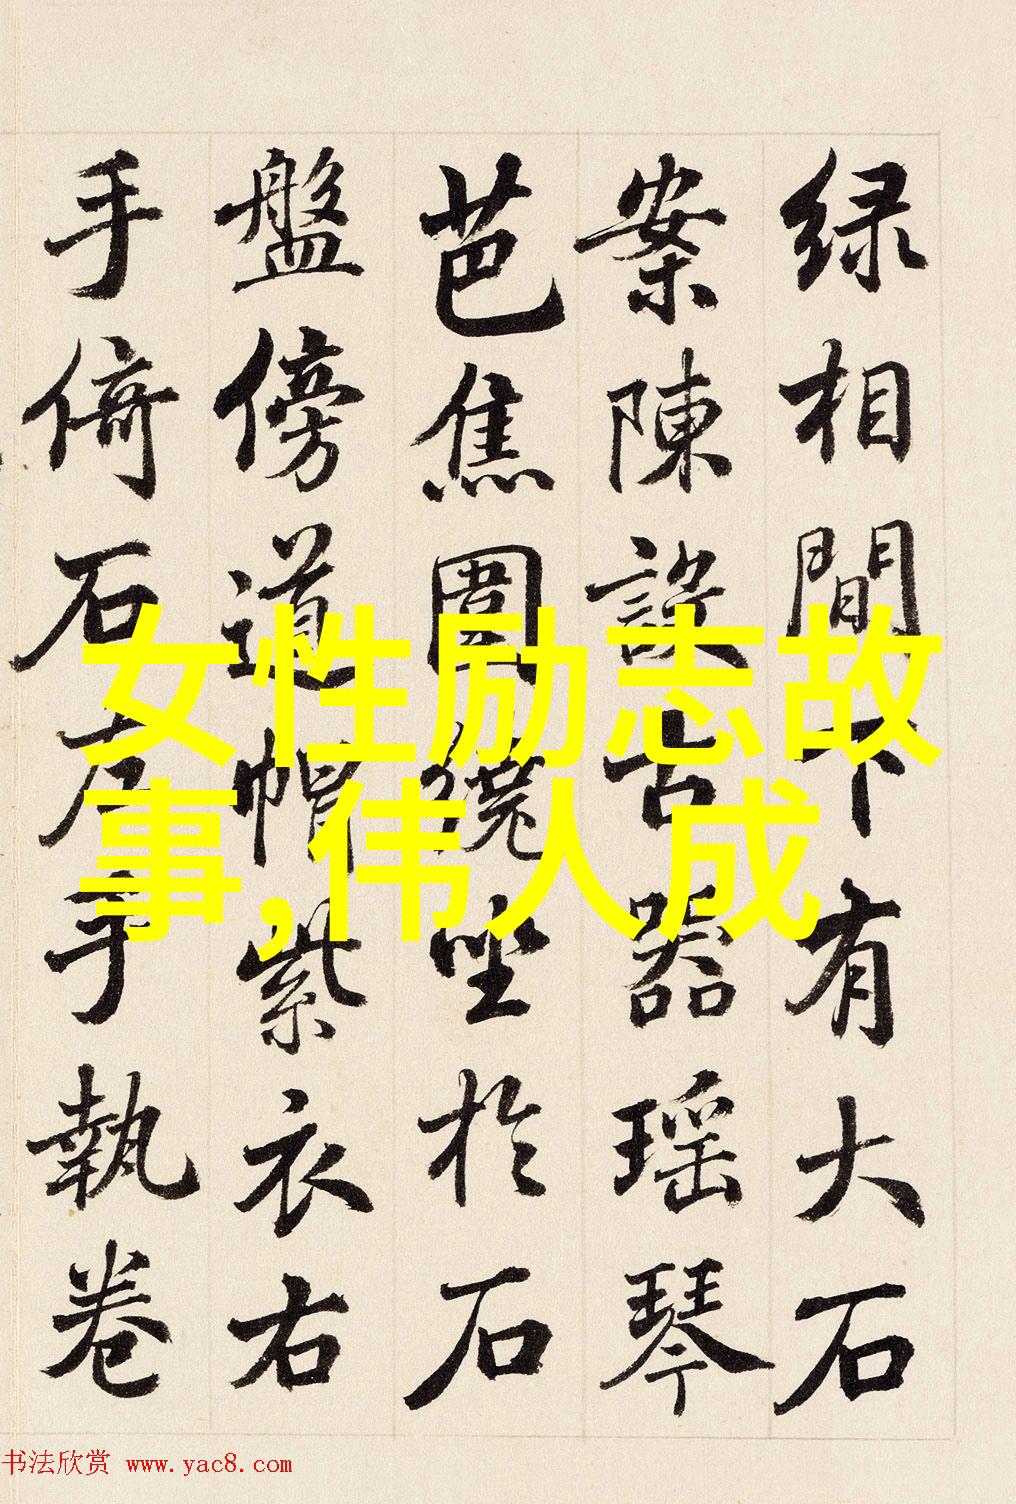 绿相間下有大石
案陳設古器瑶琴
芭焦圍繞坐於石
盤傍道帽紫衣右
手倚石左手執卷
女性励志故
事,伟人成
书法欣赏 www.yac8.com